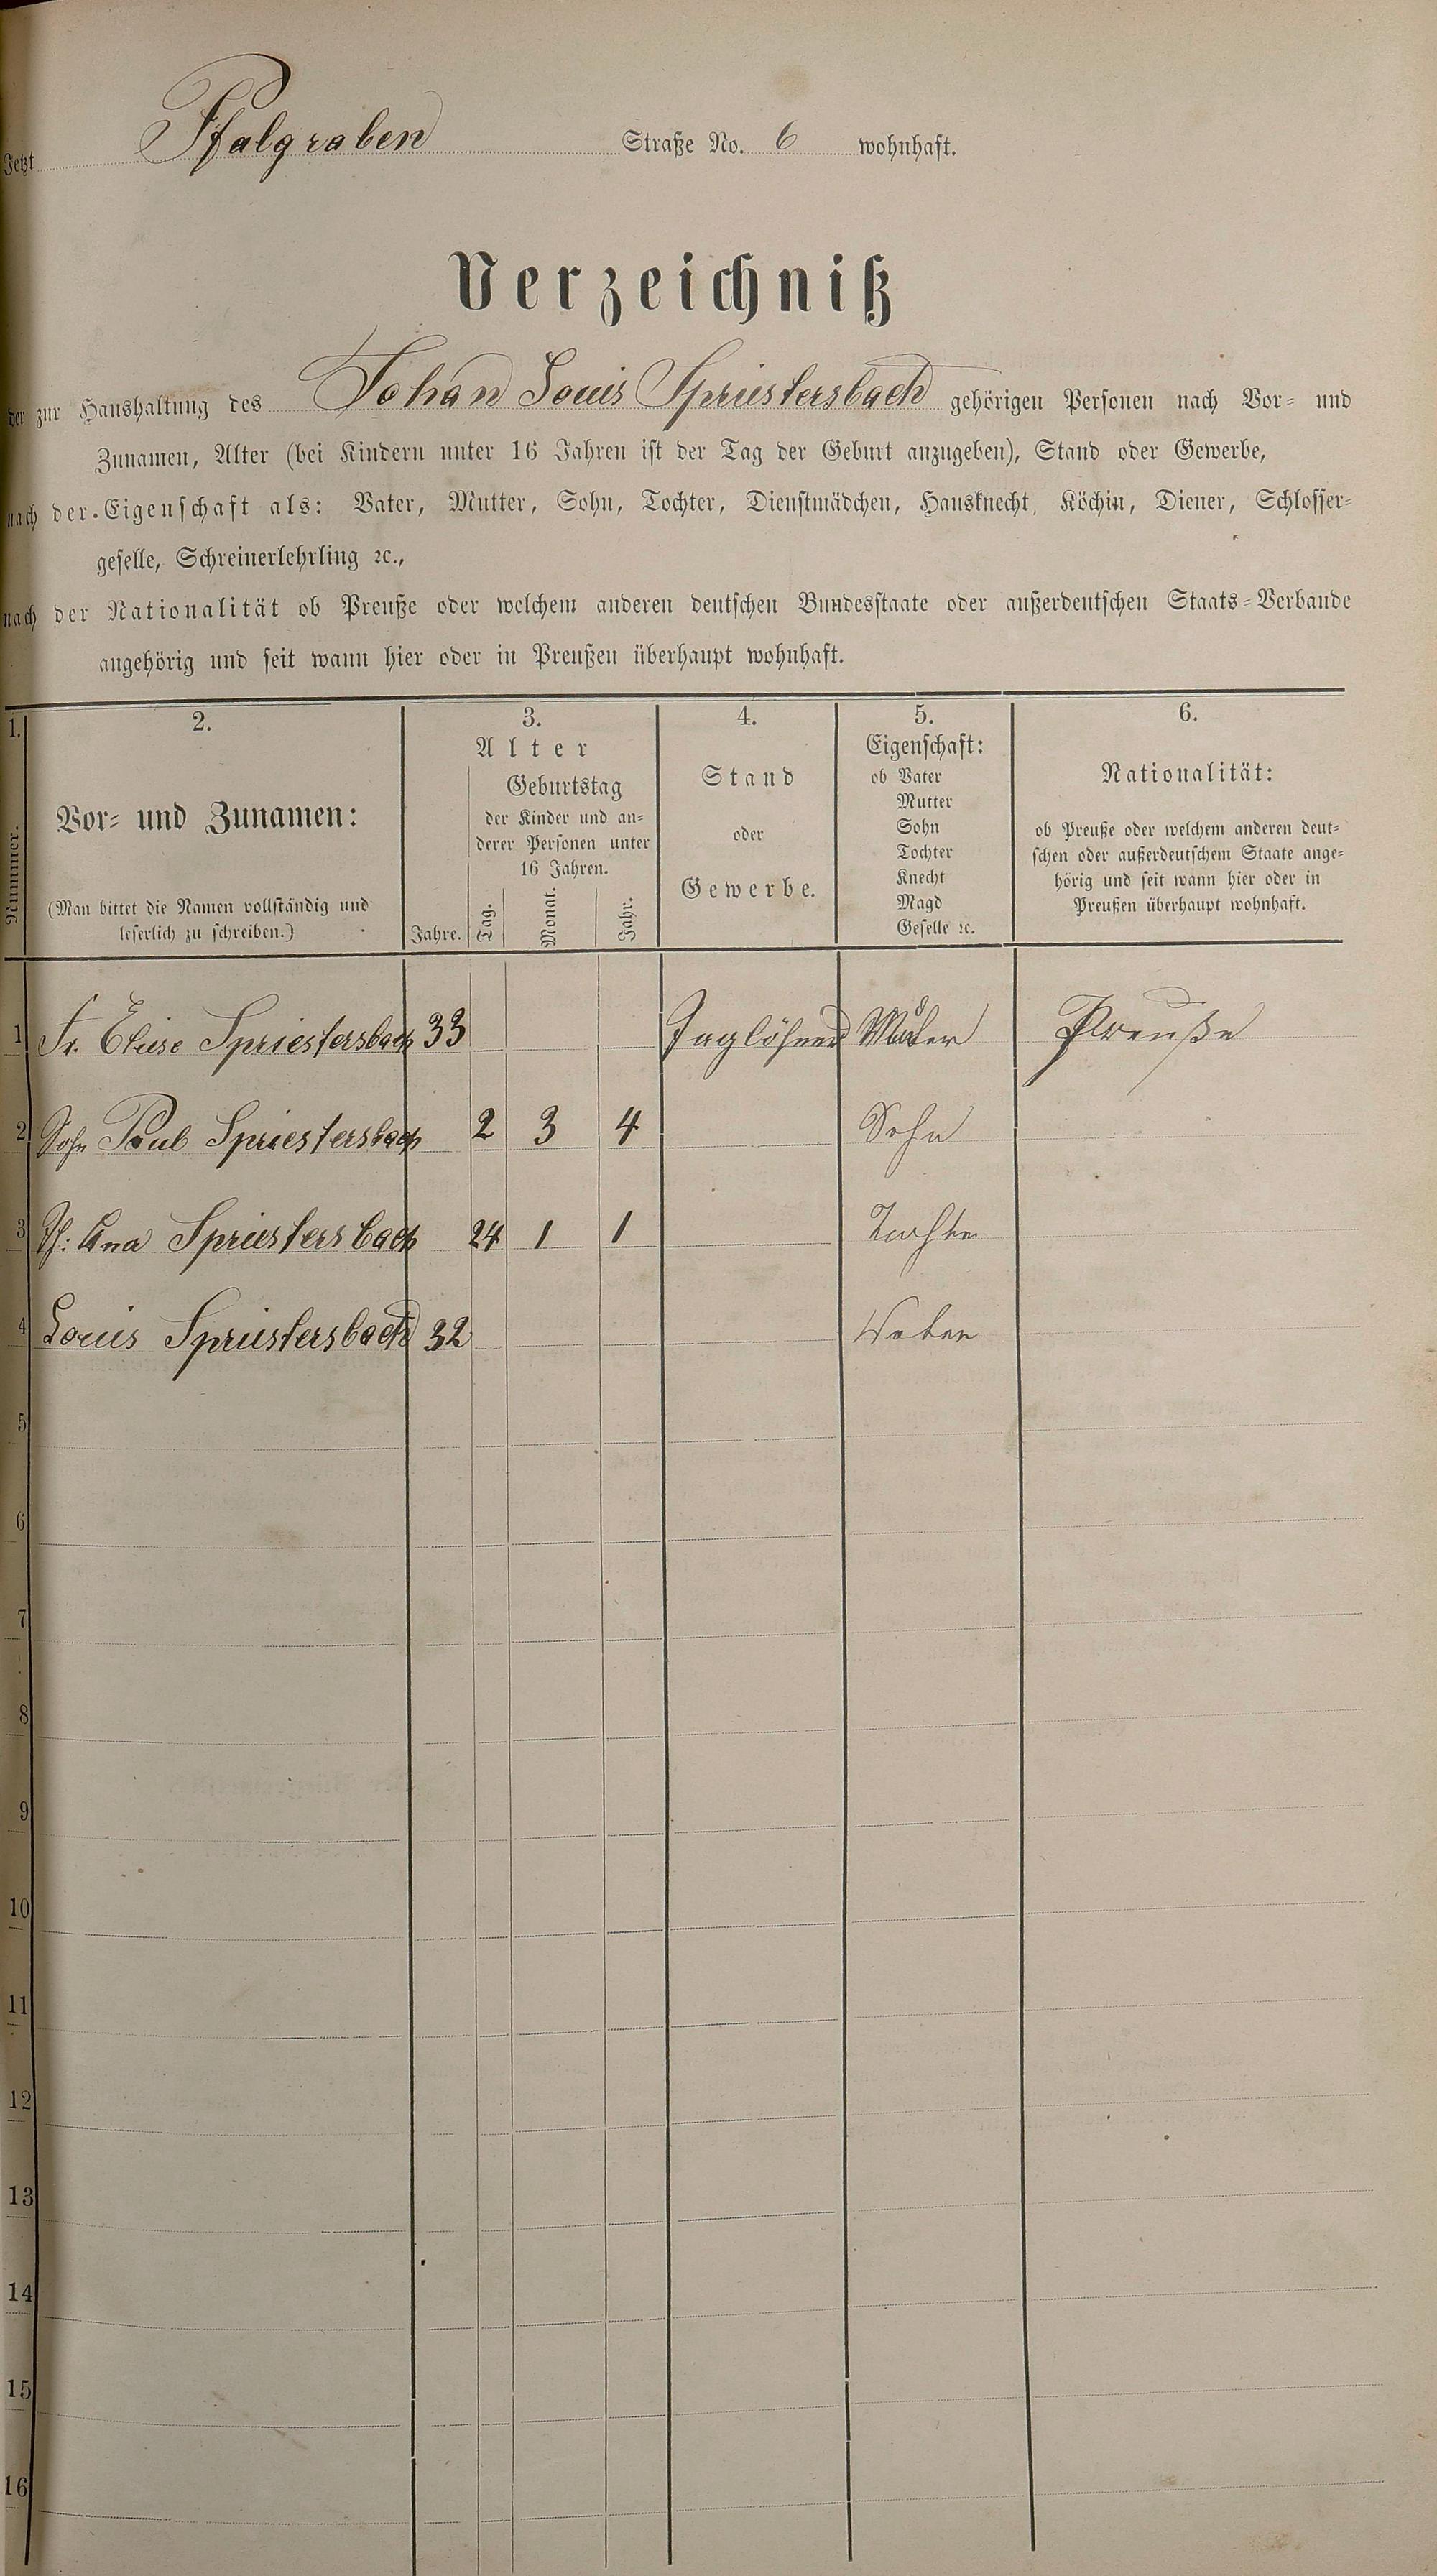 Jetzt Pfalgraben Straße No. 6 wohnhaft.
Verzeichniß
der zur Haushaltung des Johan Louis Spriestersbach gehörigen Personen nach Vor- und
Zunamen, Alter (bei Kindern unter 16 Jahren ist der Tag der Geburt anzugeben), Stand oder Gewerbe,
nach der Eigenschaft als: Vater, Mutter, Sohn, Tochter, Dienstmädchen, Hausknecht, Köchin, Diener, Schlosser-
geselle, Schreinerlehrling ꝛc.,
nach der Nationalität ob Preuße oder welchem anderen deutschen Bundesstaate oder außerdeutschen Staats-Verbande
angehörig und seit wann hier oder in Preußen überhaupt wohnhaft.
1.
Nummer.
2.
Vor- und Zunamen:
(Man bittet die Namen vollständig und
leserlich zu schreiben.)
3.
Alter
Jahre.
Geburtstag
der Kinder und an-
derer Personen unter
16 Jahren.
Tag. Monat. Jahr.
4.
Stand
oder
Gewerbe.
5.
Eigenschaft:
ob Vater
Mutter
Sohn
Tochter
Knecht
Magd
Geselle ꝛc.
6.
Nationalität:
ob Preuße oder welchem anderen deut-
schen oder außerdeutschem Staate ange-
hörig und seit wann hier oder in
Preußen überhaupt wohnhaft.
1 Fr. Eliese Spriestersbach 33 Taglöhner Mutter Preuße
2 Sohn Paul Spriestersbach 2 3 4 Sohn
3 Ana Spriestersbach 24 1 1 Tochter
4 Louis Spriestersbach 32 Vater
5
6
7
8
9
10
11
12
13
14
15
16